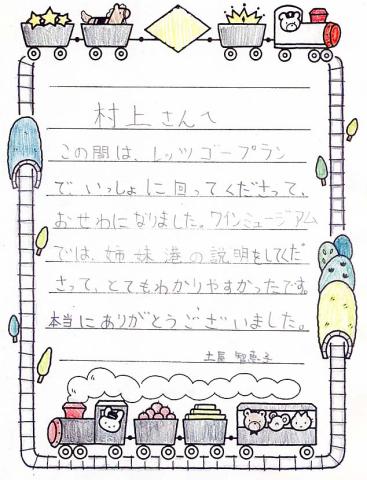 村上さんへ
この間は、レッツゴープラン
で、いっしょに回ってくださって、
おせわになりました。ワインミュージアム
では、姉妹港の説明をしてくだ
さって、とてもわかりやすかったです。
本当にありがとうございました。
土屋 智恵子